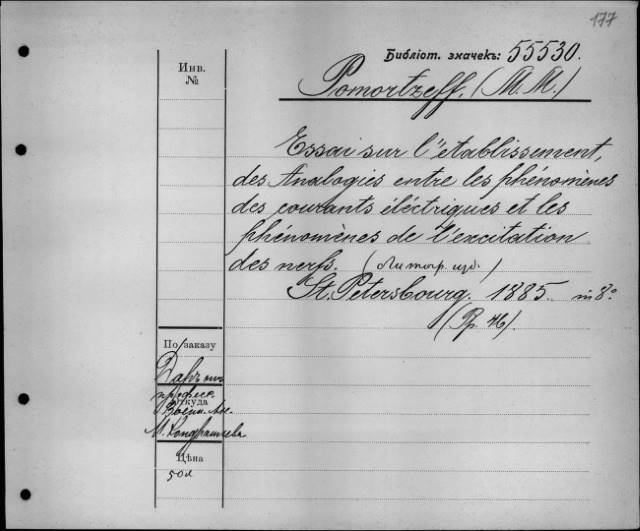 177
Библіот. значекъ: 55530.
Инв.
№
Pomortzeff. (M. M.)
Essai sur l'établissement,
des Analogies entre les phénomènes
des courants éléctriques et les
phénomènes de l'excitation
des nerfs. (Литогр. изд.)
St. Petersbourg. 1885. in 8º
(Pp. 46).
По заказу
Даръ
откуда
Цѣна